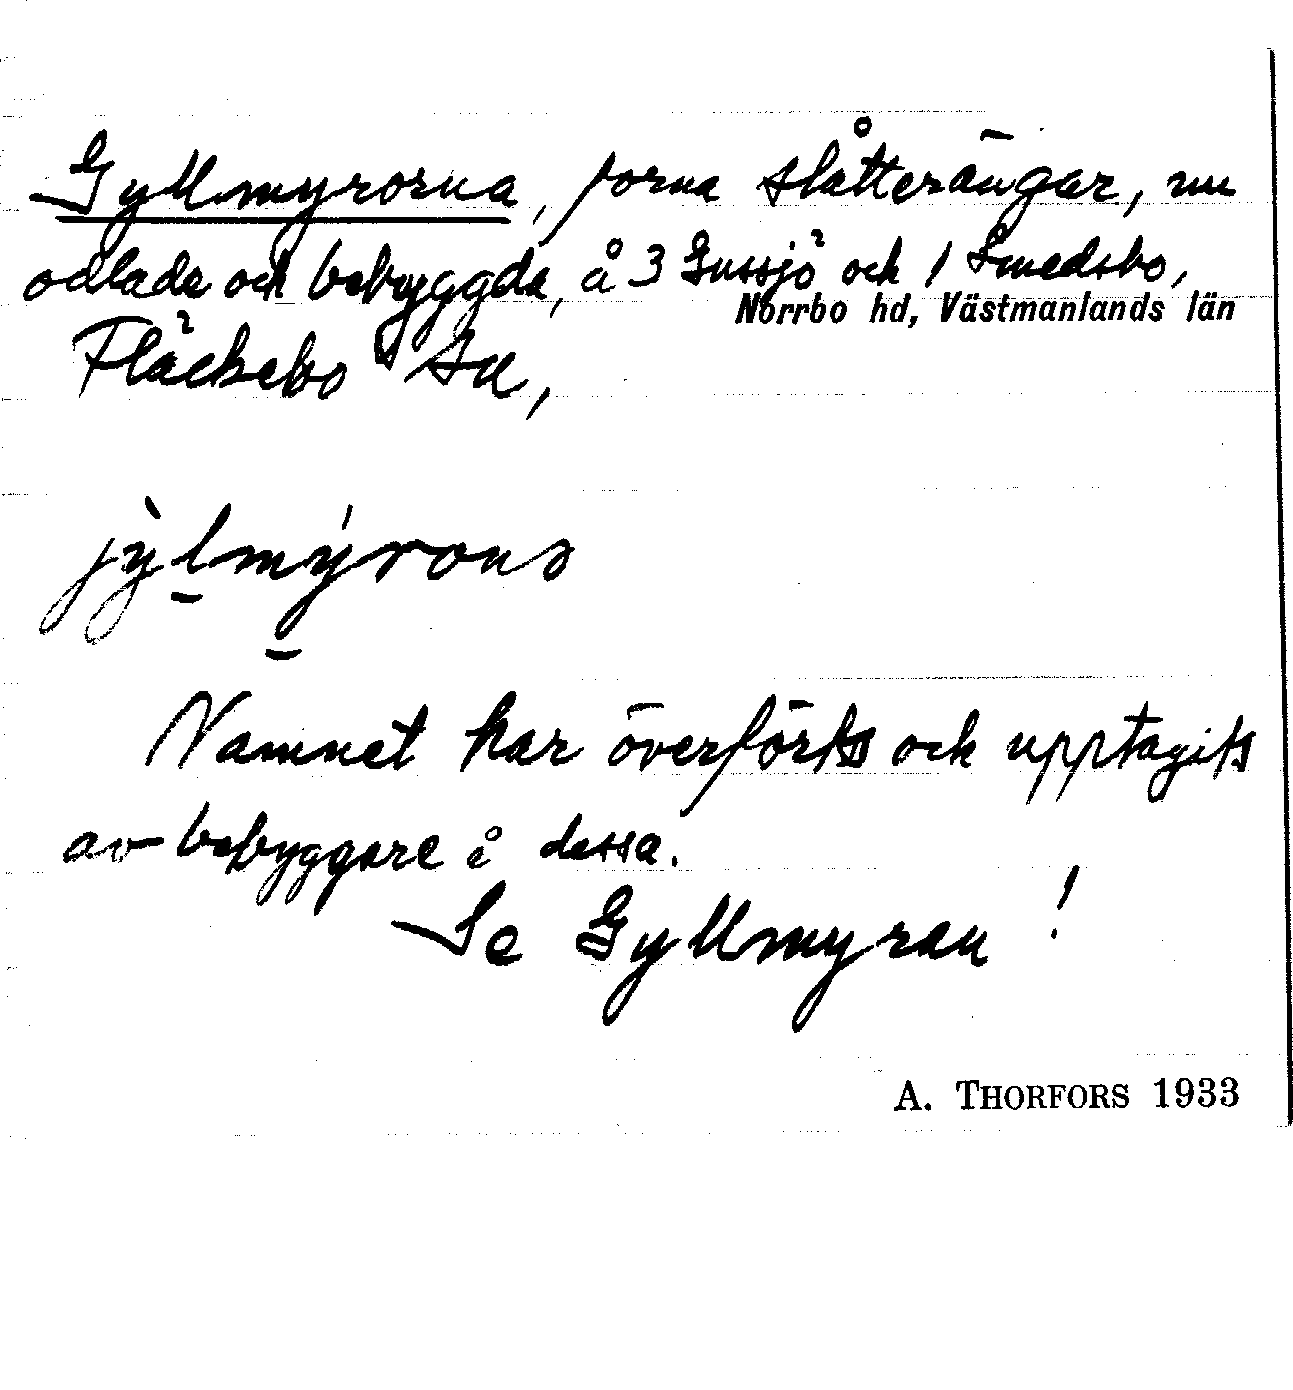 Gyllmyrorna, forna slåtterängar, nu
odlade och bebyggda, å 3 Gussjö och 1 Smedsbo,
Norrbo hd, Västmanlands län
Fläckebo sn,
jỳlmýrona
Namnet har överförts och upptagits
av bebyggare å dessa.
Se Gyllmyran!
A. THORFORS 1933